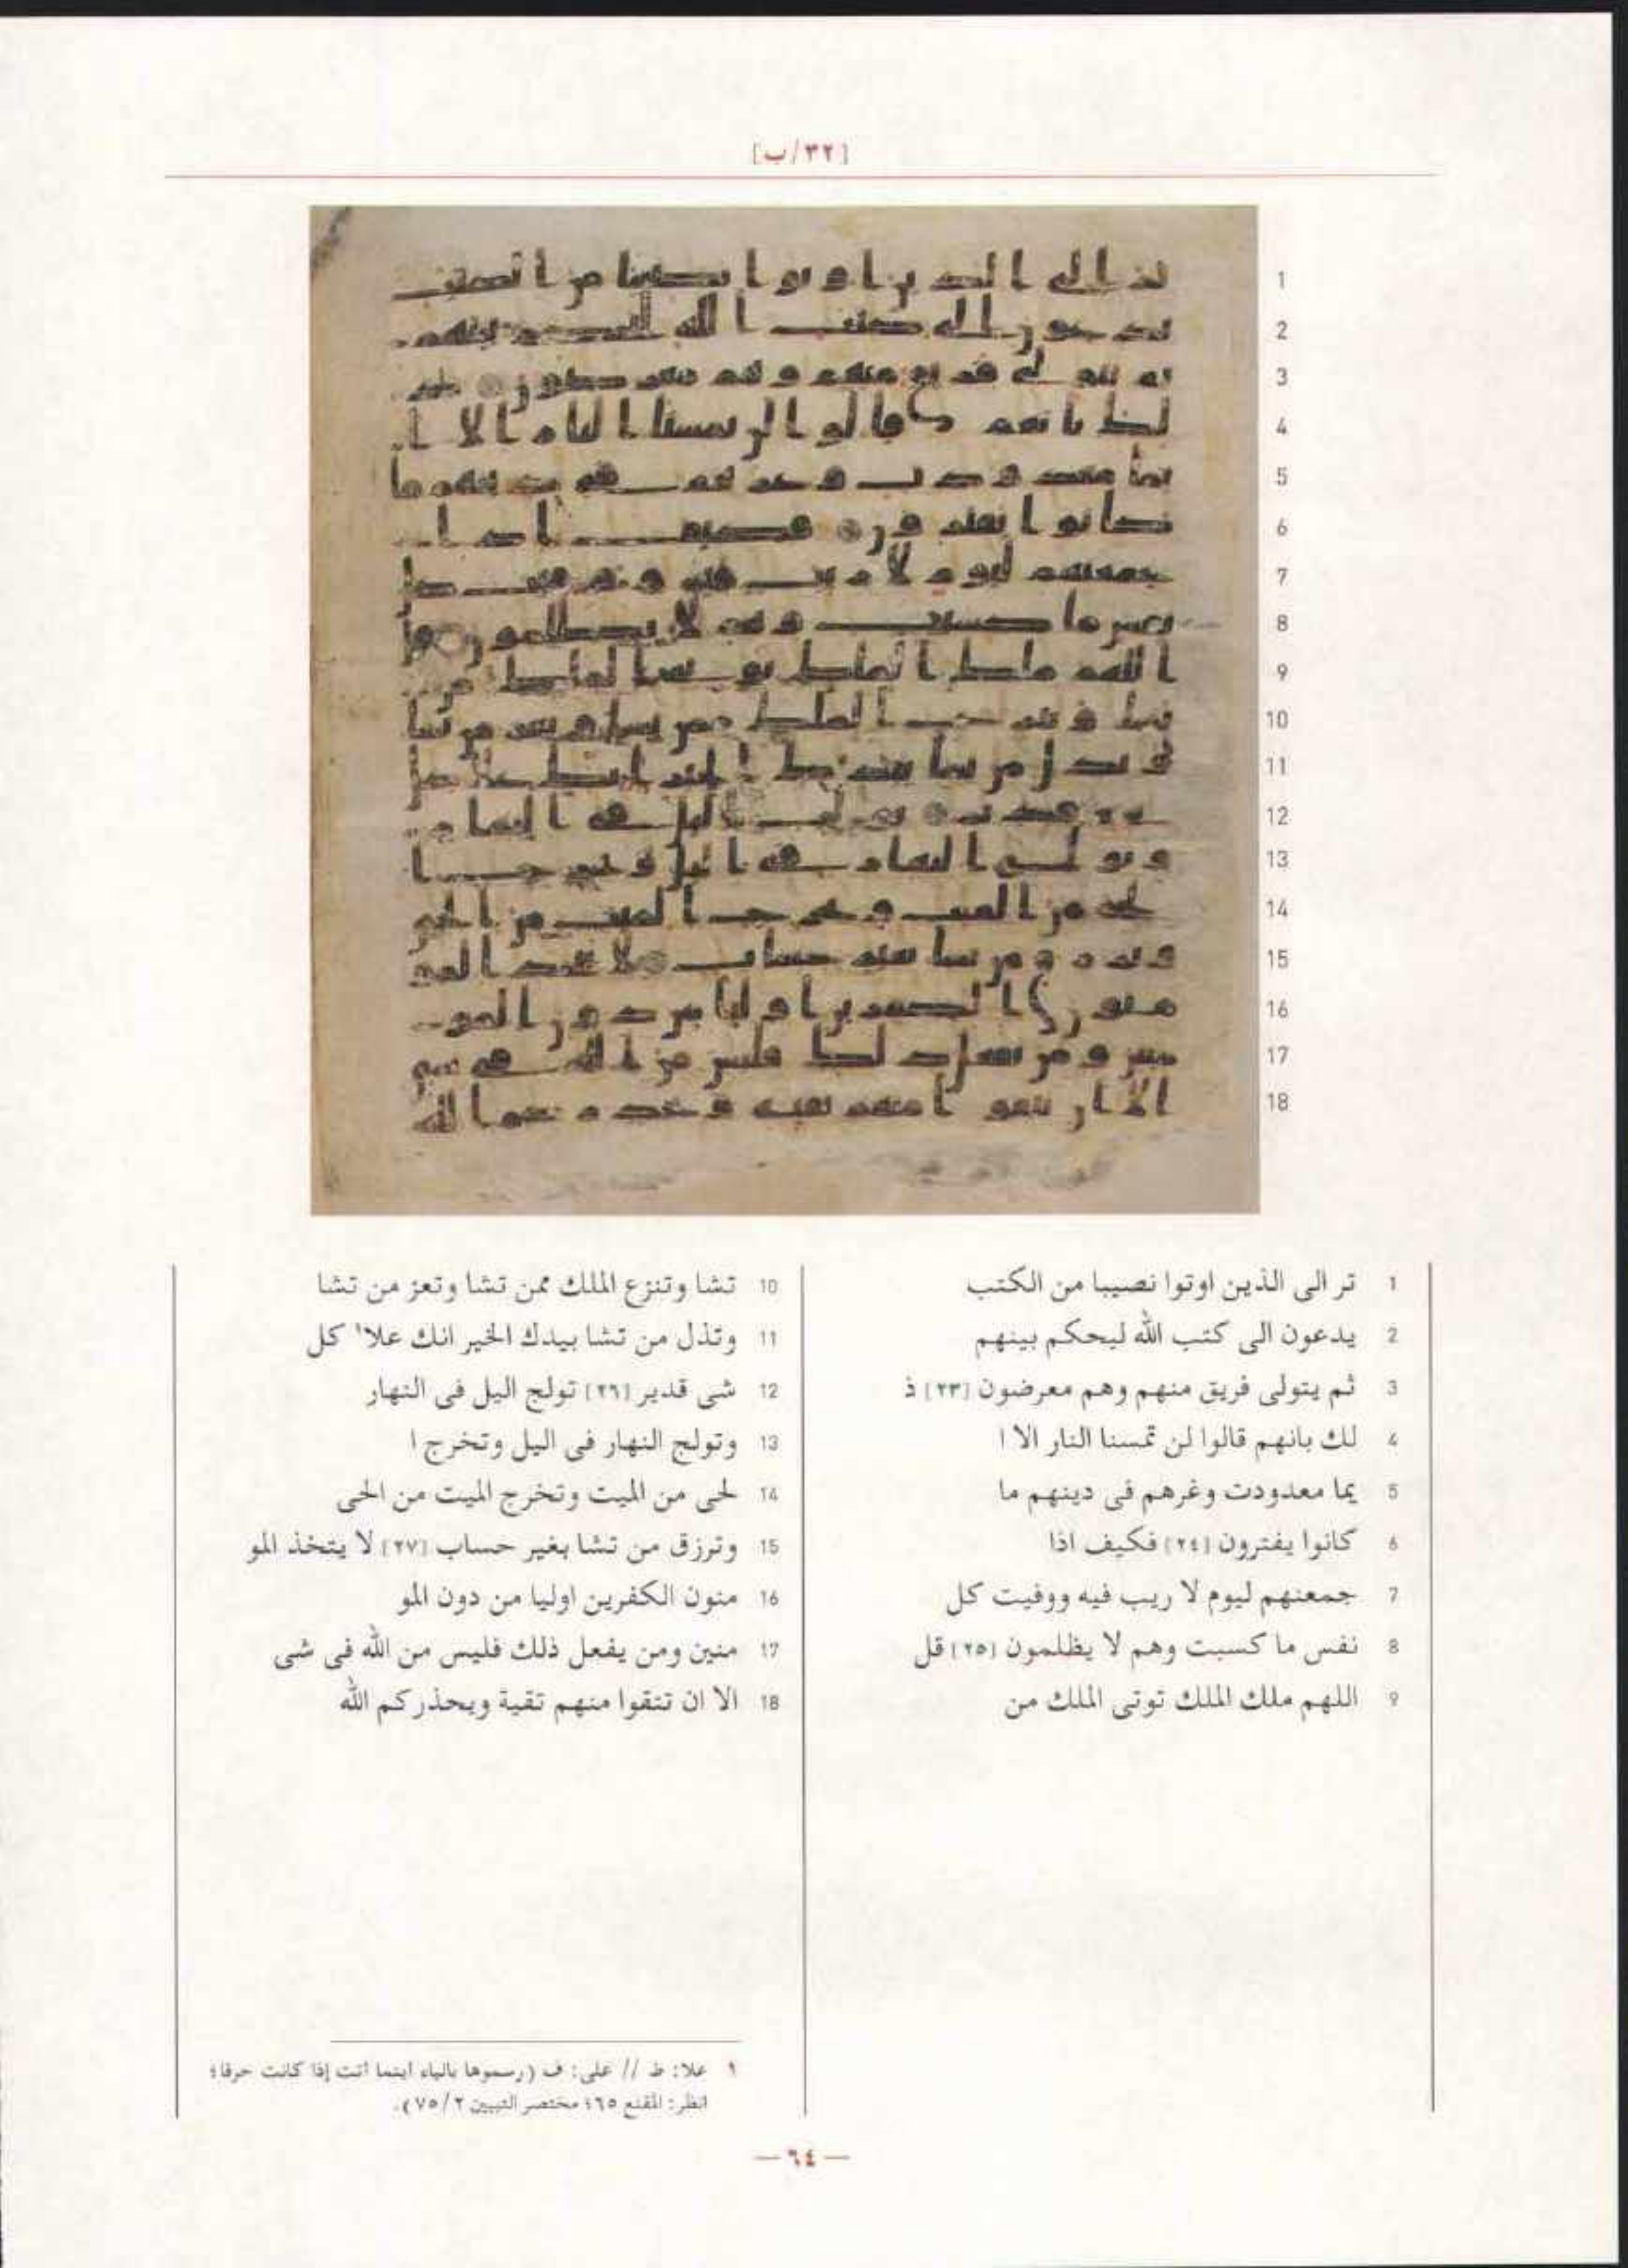 [٣٢/ب]
1 تر الى الذين اوتوا نصيبا من الكتب
2 يدعون الى كتب الله ليحكم بينهم
3 ثم يتولى فريق منهم وهم معرضون [٢٣] ذ
4 لك بانهم قالوا لن تمسنا النار الا ا
5 يما معدودت وغرهم فى دينهم ما
6 كانوا يفترون [٢٤] فكيف اذا
7 جمعنهم ليوم لا ريب فيه ووفيت كل
8 نفس ما كسبت وهم لا يظلمون [٢٥] قل
9 اللهم ملك الملك توتى الملك من
10 تشا وتنزع الملك ممن تشا وتعز من تشا
11 وتذل من تشا بيدك الخير انك علا١ كل
12 شى قدير [٢٦] تولج اليل فى النهار
13 وتولج النهار فى اليل وتخرج ا
14 لحى من الميت وتخرج الميت من الحى
15 وترزق من تشا بغير حساب [٢٧] لا يتخذ المو
16 منون الكفرين اوليا من دون المو
17 منين ومن يفعل ذلك فليس من الله فى شى
18 الا ان تتقوا منهم تقية ويحذركم الله
١ علا: ط // على: ف (رسموها بالياء اينما اتت إذا كانت حرفا؛
انظر: المقنع ٦٥؛ مختصر التبيين ٧٥/٢).
— ٦٤ —